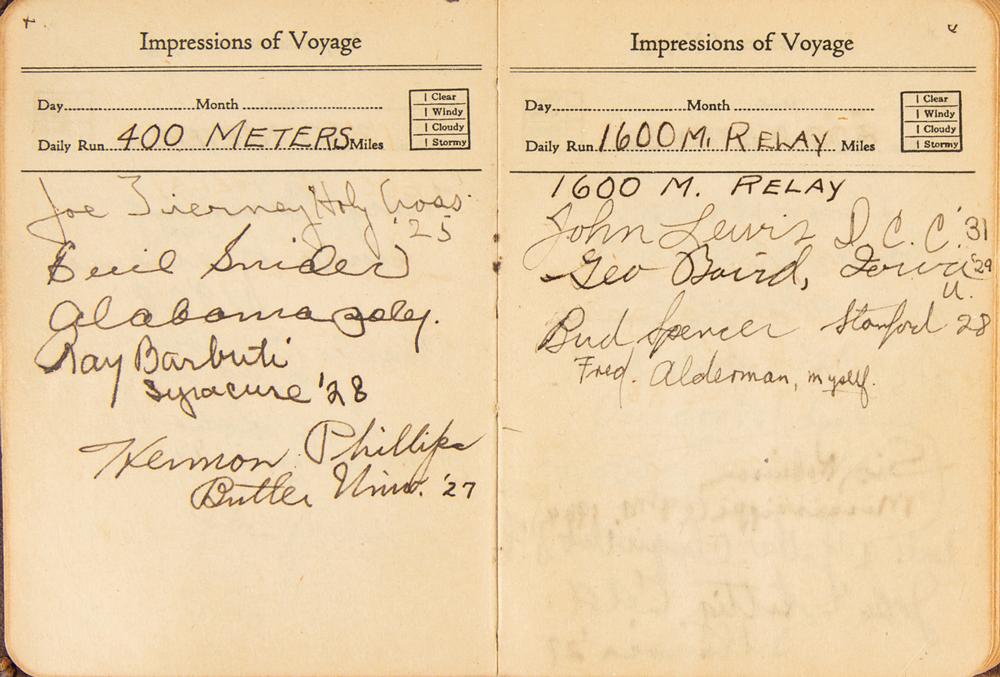 Impressions of Voyage
Day Month
Clear
Windy
Cloudy
Stormy
Daily Run 400 METERS Miles
Joe Tierney Holy Cross
'25
Emil Snider
Alabama Poly.
Ray Barbuti
Syracuse '28
Hermon Phillips
Butler Univ. '27
Impressions of Voyage
Day Month
Clear
Windy
Cloudy
Stormy
Daily Run 1600 M. RELAY Miles
1600 M. RELAY
John Lewis D.C.C. '31
Geo Baird, Iowa '29
U.
Bud Spencer Stanford 28
Fred. Alderman, myself.